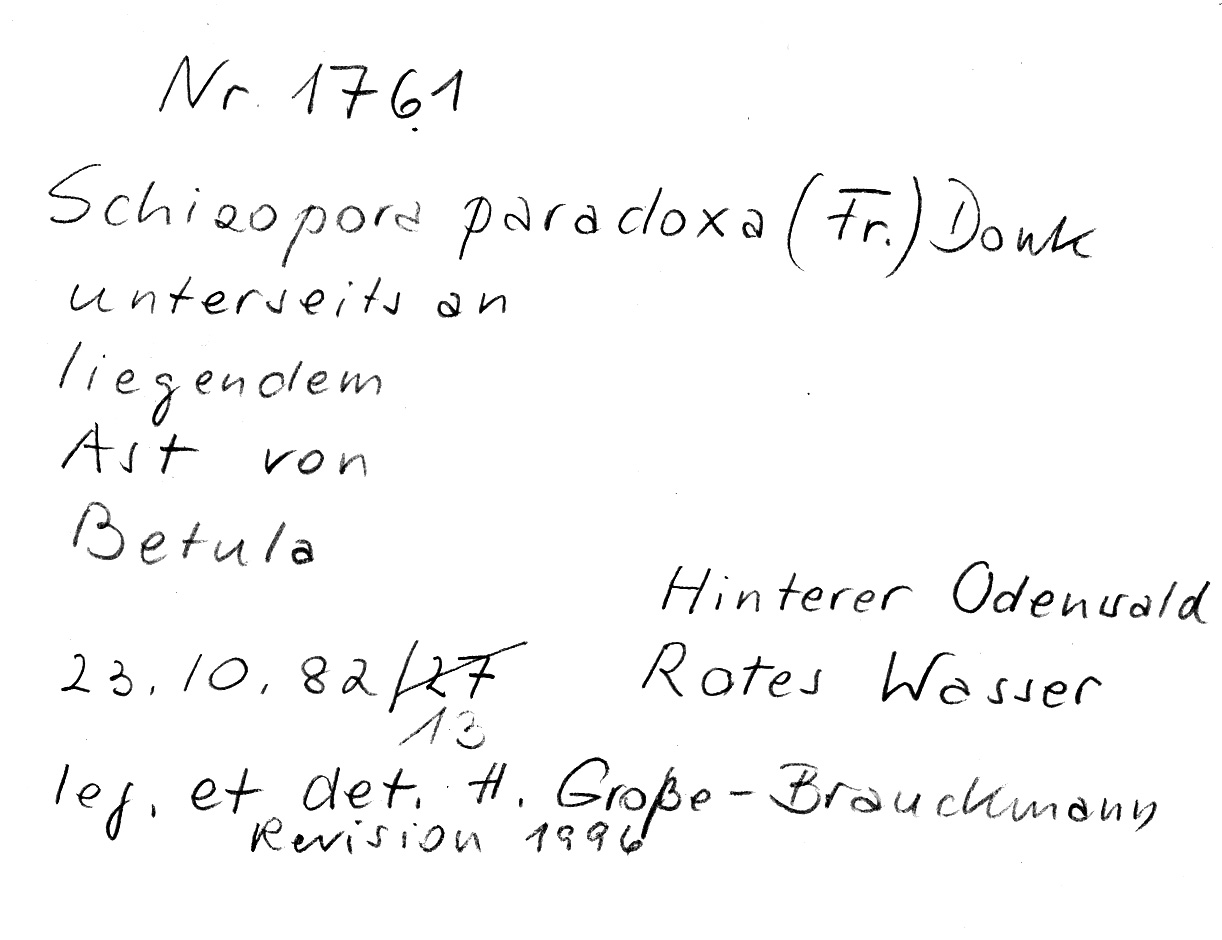 Nr. 1761
Schizopora paradoxa (Fr.) Donk
unterseits an
liegendem
Ast von
Betula
Hinterer Odenwald
23.10.82/27 Rotes Wasser
13
leg. et det. H. Große-Brauckmann
Revision 1996